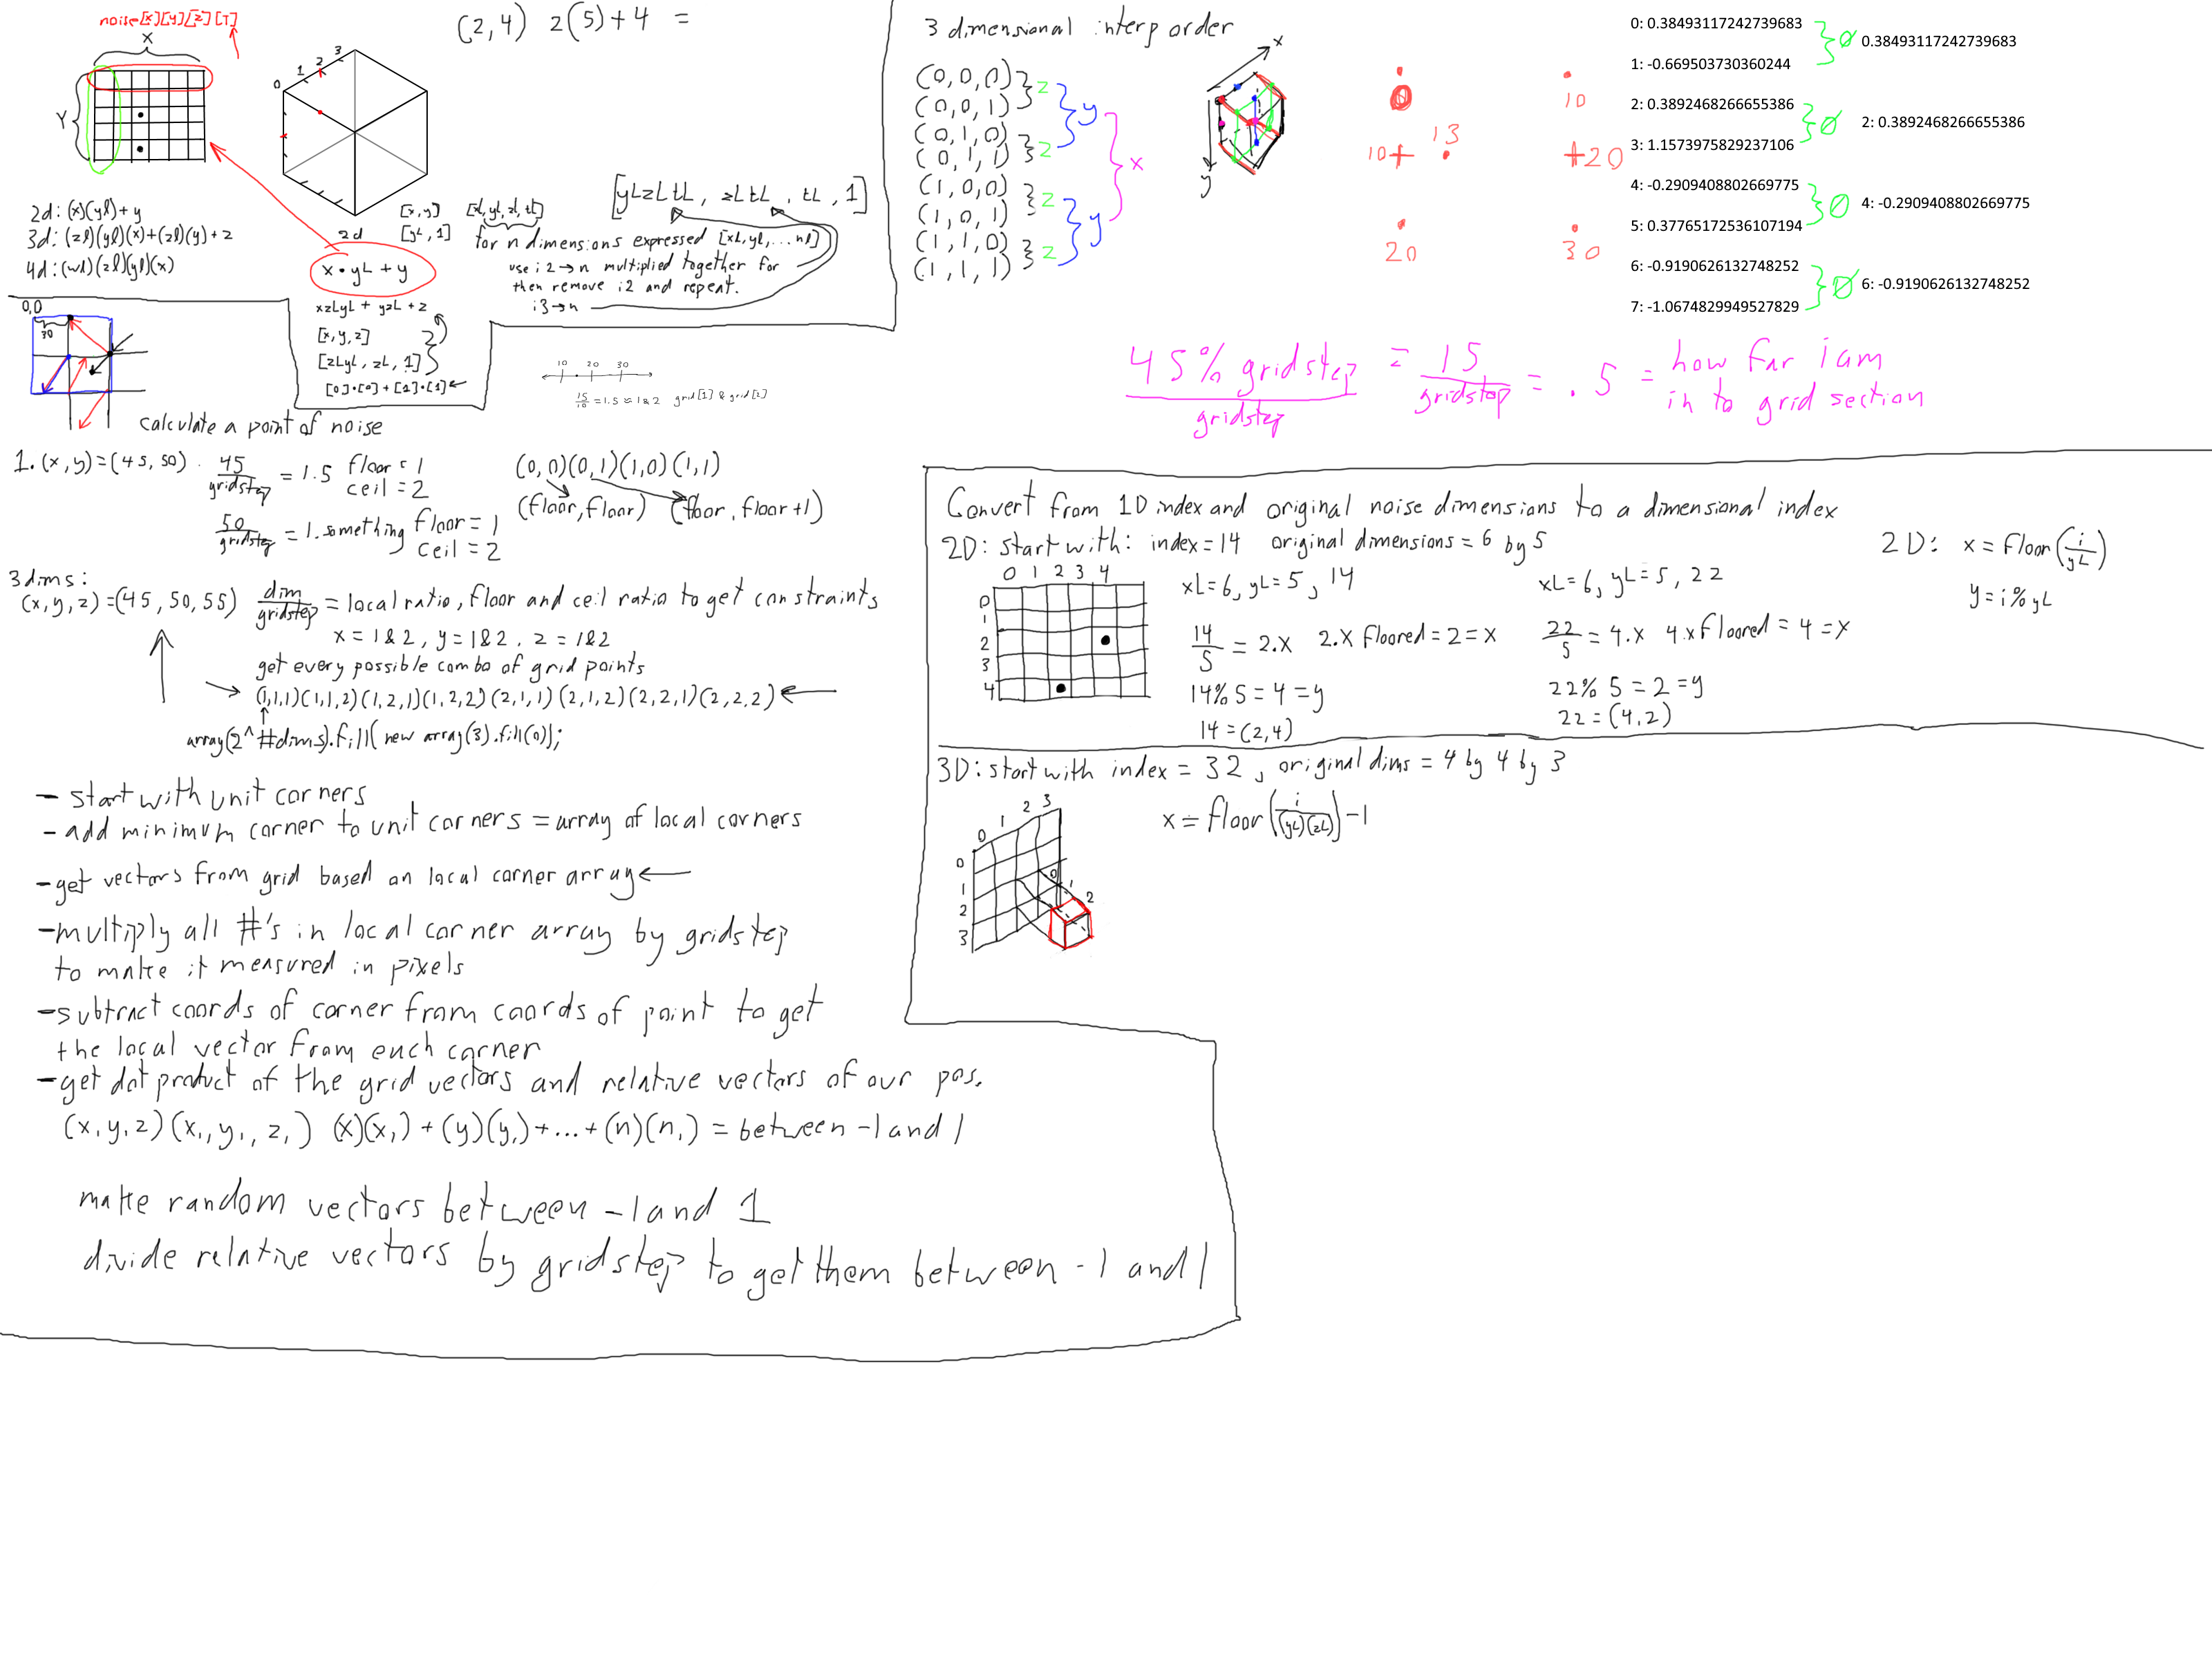 noise[x][y][z][T]
X
Y
(2,4) 2(5)+4 =
0 1 2 3
2d: (x)(yl)+y
3d: (zl)(yl)(x)+(zl)(y)+z
4d: (wl)(zl)(yl)(x)
2d
[x,y]
[yL,1]
x•yL+y
xzLyL + yzL + z
[x,y,z]
[zLyL, zL, 1]
[0]•[0]+[1]•[1]
[xl, yl, zl, tl]
[yLzLtL, zLtL, tL, 1]
for n dimensions expressed [xL,yL,...nl]
use i2→n multiplied together for
then remove i2 and repeat.
i3→n
0,0
30
10 20 30
15/10 = 1.5 = 1&2 grid[1] & grid[2]
calculate a point of noise
1. (x,y)=(45,50). 45/gridstep = 1.5 floor=1 ceil=2
50/gridstep = 1.something floor=1 ceil=2
(0,0)(0,1)(1,0)(1,1)
(floor,floor) (floor,floor+1)
3dims:
(x,y,z)=(45,50,55) dim/gridstep = local ratio, floor and ceil ratio to get constraints
x=1&2, y=1&2, z=1&2
get every possible combo of grid points
(1,1,1)(1,1,2)(1,2,1)(1,2,2)(2,1,1)(2,1,2)(2,2,1)(2,2,2)
array(2^#dims).fill(new array(3).fill(0));
- start with unit corners
- add minimum corner to unit corners = array of local corners
- get vectors from grid based on local corner array
- multiply all #'s in local corner array by gridstep
to make it measured in pixels
- subtract coords of corner from coords of point to get
the local vector from each corner
- get dot product of the grid vectors and relative vectors of our pos.
(x,y,z)(x₁,y₁,z₁) (x)(x₁)+(y)(y₁)+...+(n)(n₁) = between -1 and 1
make random vectors between -1 and 1
divide relative vectors by gridstep to get them between -1 and 1
3 dimensional interp order
(0,0,0)
(0,0,1)
(0,1,0)
(0,1,1)
(1,0,0)
(1,0,1)
(1,1,0)
(1,1,1)
z
z
z
z
y
y
x
x
y
0 10
10 13 20
20 30
0: 0.38493117242739683
1: -0.669503730360244
2: 0.3892468266655386
3: 1.1573975829237106
4: -0.2909408802669775
5: 0.37765172536107194
6: -0.9190626132748252
7: -1.0674829949527829
0 0.38493117242739683
0 2: 0.3892468266655386
0 4: -0.2909408802669775
0 6: -0.9190626132748252
45% gridstep/gridstep = 15/gridstep = .5 = how far i am
in to grid section
Convert from 1D index and original noise dimensions to a dimensional index
2D: start with: index=14 original dimensions = 6 by 5
0 1 2 3 4
0
1
2
3
4
xL=6, yL=5, 14
14/5 = 2.x 2.x Floored = 2 = x
14%5=4=y
14=(2,4)
xL=6, yL=5, 22
22/5 = 4.x 4.x Floored = 4 = x
22%5=2=y
22=(4,2)
2D: x = Floor(i/yL)
y=i%yL
3D: start with index = 32, original dims = 4 by 4 by 3
0 1 2 3
0
1
2
3
0 1 2
x = floor(i/(yL)(zL))-1